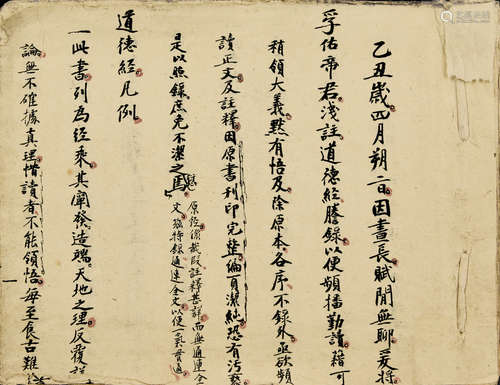 乙丑歲四月朔一日因晝長賦閒無聊爰將
孚佑帝君淺註道德經謄錄以便頻播勤讀藉可
稍領大義默有悟及除原本各序不錄外亟欲頻
讀正文及註釋因原書刊印完整編頁潔純恐有污褻
是以照錄庶免不潔之
原經係裁段註釋甚詳而無通連全
文茲特錄通連全文以便一氣貫通
道德經凡例
一此書列為經乘其闡發造端天地之理反覆
論無不確據真理惜讀者不能領悟每至食古難